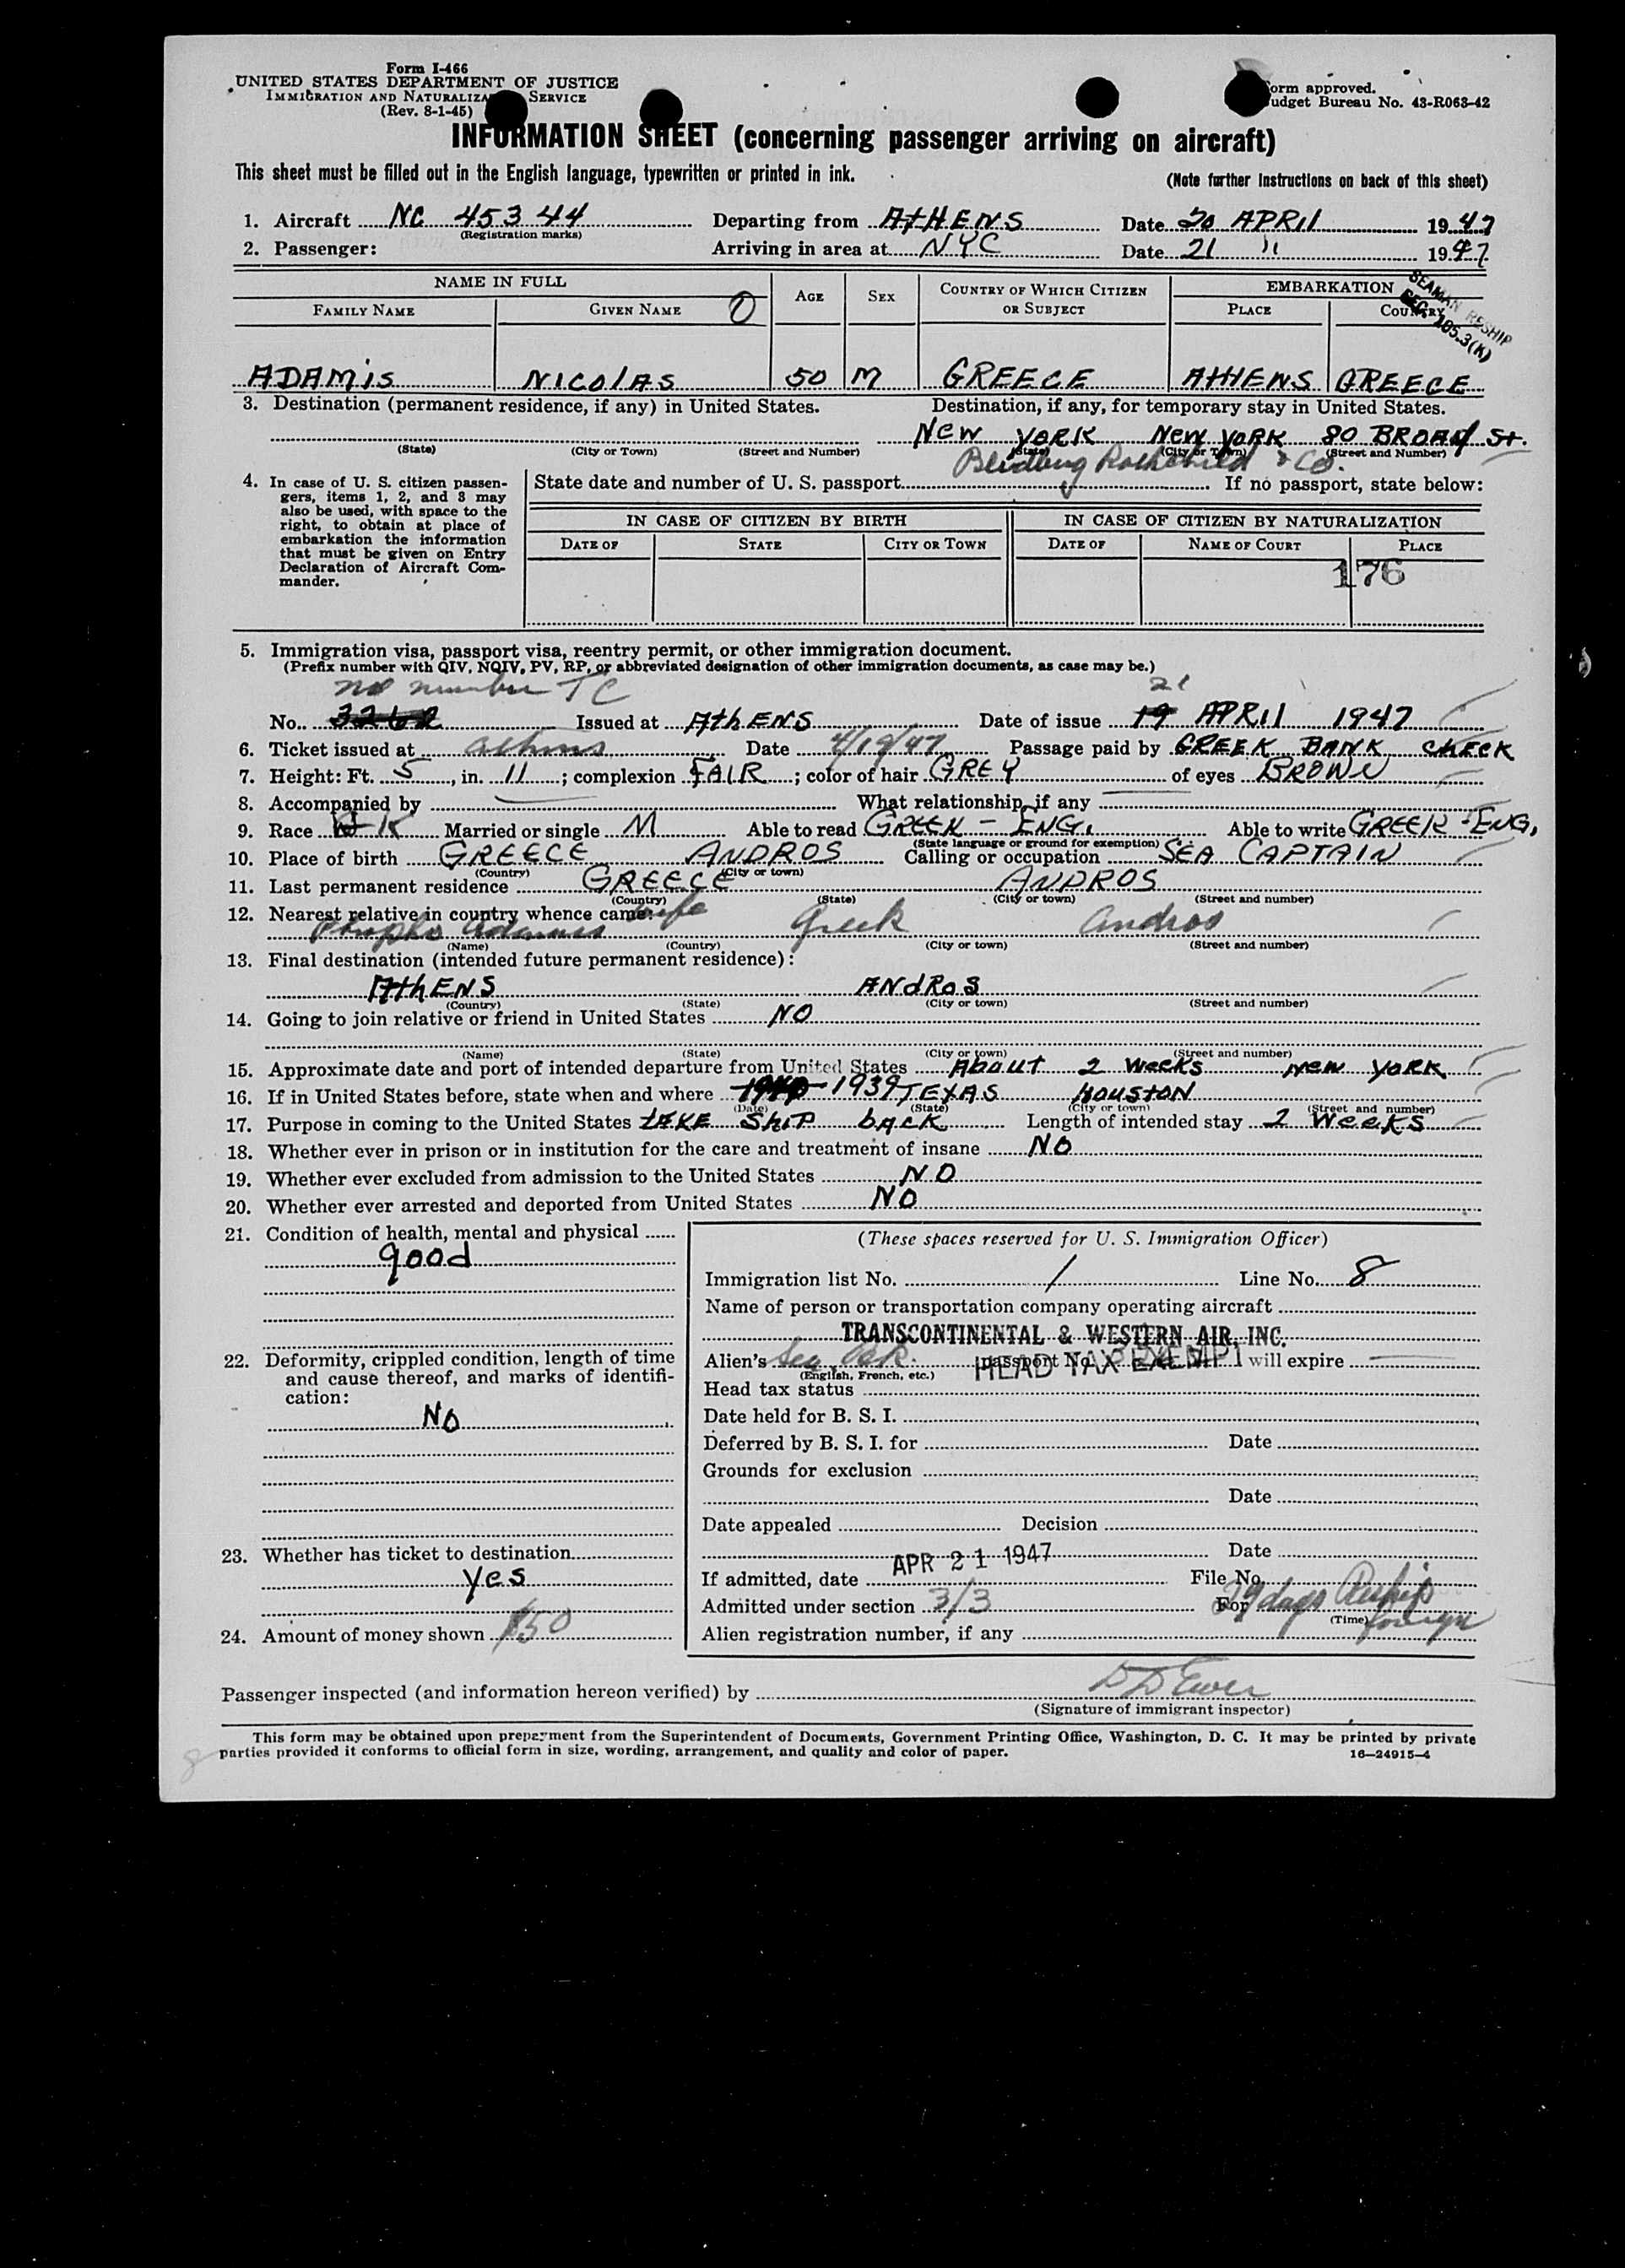 Form I-466
UNITED STATES DEPARTMENT OF JUSTICE
IMMIGRATION AND NATURALIZA SERVICE
(Rev. 8-1-45)
orm approved.
udget Bureau No. 43-R063-42
INFORMATION SHEET (concerning passenger arriving on aircraft)
This sheet must be filled out in the English language, typewritten or printed in ink.
(Note further instructions on back of this sheet)
1. Aircraft NC 45344 Departing from AthENS Date 20 APRIl 1947
(Registration marks)
2. Passenger: Arriving in area at NYC Date 21 " 1947
NAME IN FULL AGE SEX COUNTRY OF WHICH CITIZEN OR SUBJECT EMBARKATION
FAMILY NAME GIVEN NAME PLACE COUNTRY
SEAMAN RESHIP
SEC. 105.3(K)
ADAMis NICOlAS 50 M GREECE AtHENS GREECE
3. Destination (permanent residence, if any) in United States. Destination, if any, for temporary stay in United States.
New YORK New YORK 80 BROAd St.
(State) (City or Town) (Street and Number) (State) (City or Town) (Street and Number)
& Co.
4. In case of U. S. citizen passengers, items 1, 2, and 3 may also be used, with space to the right, to obtain at place of embarkation the information that must be given on Entry Declaration of Aircraft Commander.
State date and number of U. S. passport If no passport, state below:
IN CASE OF CITIZEN BY BIRTH IN CASE OF CITIZEN BY NATURALIZATION
DATE OF STATE CITY OR TOWN DATE OF NAME OF COURT PLACE
176
5. Immigration visa, passport visa, reentry permit, or other immigration document.
(Prefix number with QIV, NQIV, PV, RP, or abbreviated designation of other immigration documents, as case may be.)
no number TC 21
No. 3262 Issued at AthENS Date of issue 19 APRIl 1947
6. Ticket issued at athens Date 4/19/47 Passage paid by GREEK BANK CHECK
7. Height: Ft. 5, in. 11; complexion FAIR; color of hair GREY of eyes BROWN
8. Accompanied by What relationship, if any
9. Race K Married or single M Able to read GREEK - ENG. Able to write GREEK - ENG.
(State language or ground for exemption)
10. Place of birth GREECE ANDROS Calling or occupation SEA CAPTAIN
(Country) (City or town)
11. Last permanent residence GREECE ANDROS
(Country) (State) (City or town) (Street and number)
12. Nearest relative in country whence came: wife
Adamis Greek Andros
(Name) (Country) (City or town) (Street and number)
13. Final destination (intended future permanent residence):
AthENS ANdRoS
(Country) (State) (City or town) (Street and number)
14. Going to join relative or friend in United States NO
(Name) (State) (City or town) (Street and number)
15. Approximate date and port of intended departure from United States About 2 weeks new YORK
16. If in United States before, state when and where 1939 TEXAS HOUSTON
(Date) (State) (City or town) (Street and number)
17. Purpose in coming to the United States tAKE ShiP bACK Length of intended stay 2 Weeks
18. Whether ever in prison or in institution for the care and treatment of insane NO
19. Whether ever excluded from admission to the United States NO
20. Whether ever arrested and deported from United States NO
21. Condition of health, mental and physical
good
22. Deformity, crippled condition, length of time and cause thereof, and marks of identification:
NO
23. Whether has ticket to destination
yes
24. Amount of money shown $50
(These spaces reserved for U. S. Immigration Officer)
Immigration list No. 1 Line No. 8
Name of person or transportation company operating aircraft
TRANSCONTINENTAL & WESTERN AIR, INC.
Alien's passport No. will expire
(English, French, etc.)
HEAD TAX EXEMPT
Head tax status
Date held for B. S. I.
Deferred by B. S. I. for Date
Grounds for exclusion
Date
Date appealed Decision
Date
If admitted, date APR 21 1947 File No.
Admitted under section 3/3 For 29 days Reship foreign
(Time)
Alien registration number, if any
Passenger inspected (and information hereon verified) by
(Signature of immigrant inspector)
This form may be obtained upon prepayment from the Superintendent of Documents, Government Printing Office, Washington, D. C. It may be printed by private
parties provided it conforms to official form in size, wording, arrangement, and quality and color of paper. 16—24915-4
8